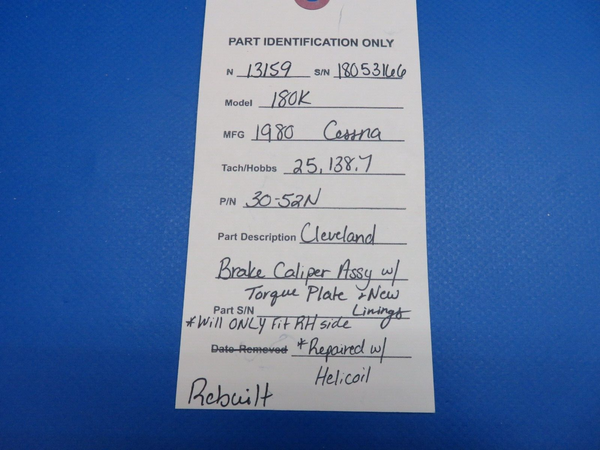 PART IDENTIFICATION ONLY
N 13159 S/N 18053166
Model 180K
MFG 1980 Cessna
Tach/Hobbs 25,138.7
P/N 30-52N
Part Description Cleveland
Brake Caliper Assy w/
Torque Plate & New
Part S/N Linings
*Will ONLY Fit RH side
Date Removed *Repaired w/
Helicoil
Rebuilt